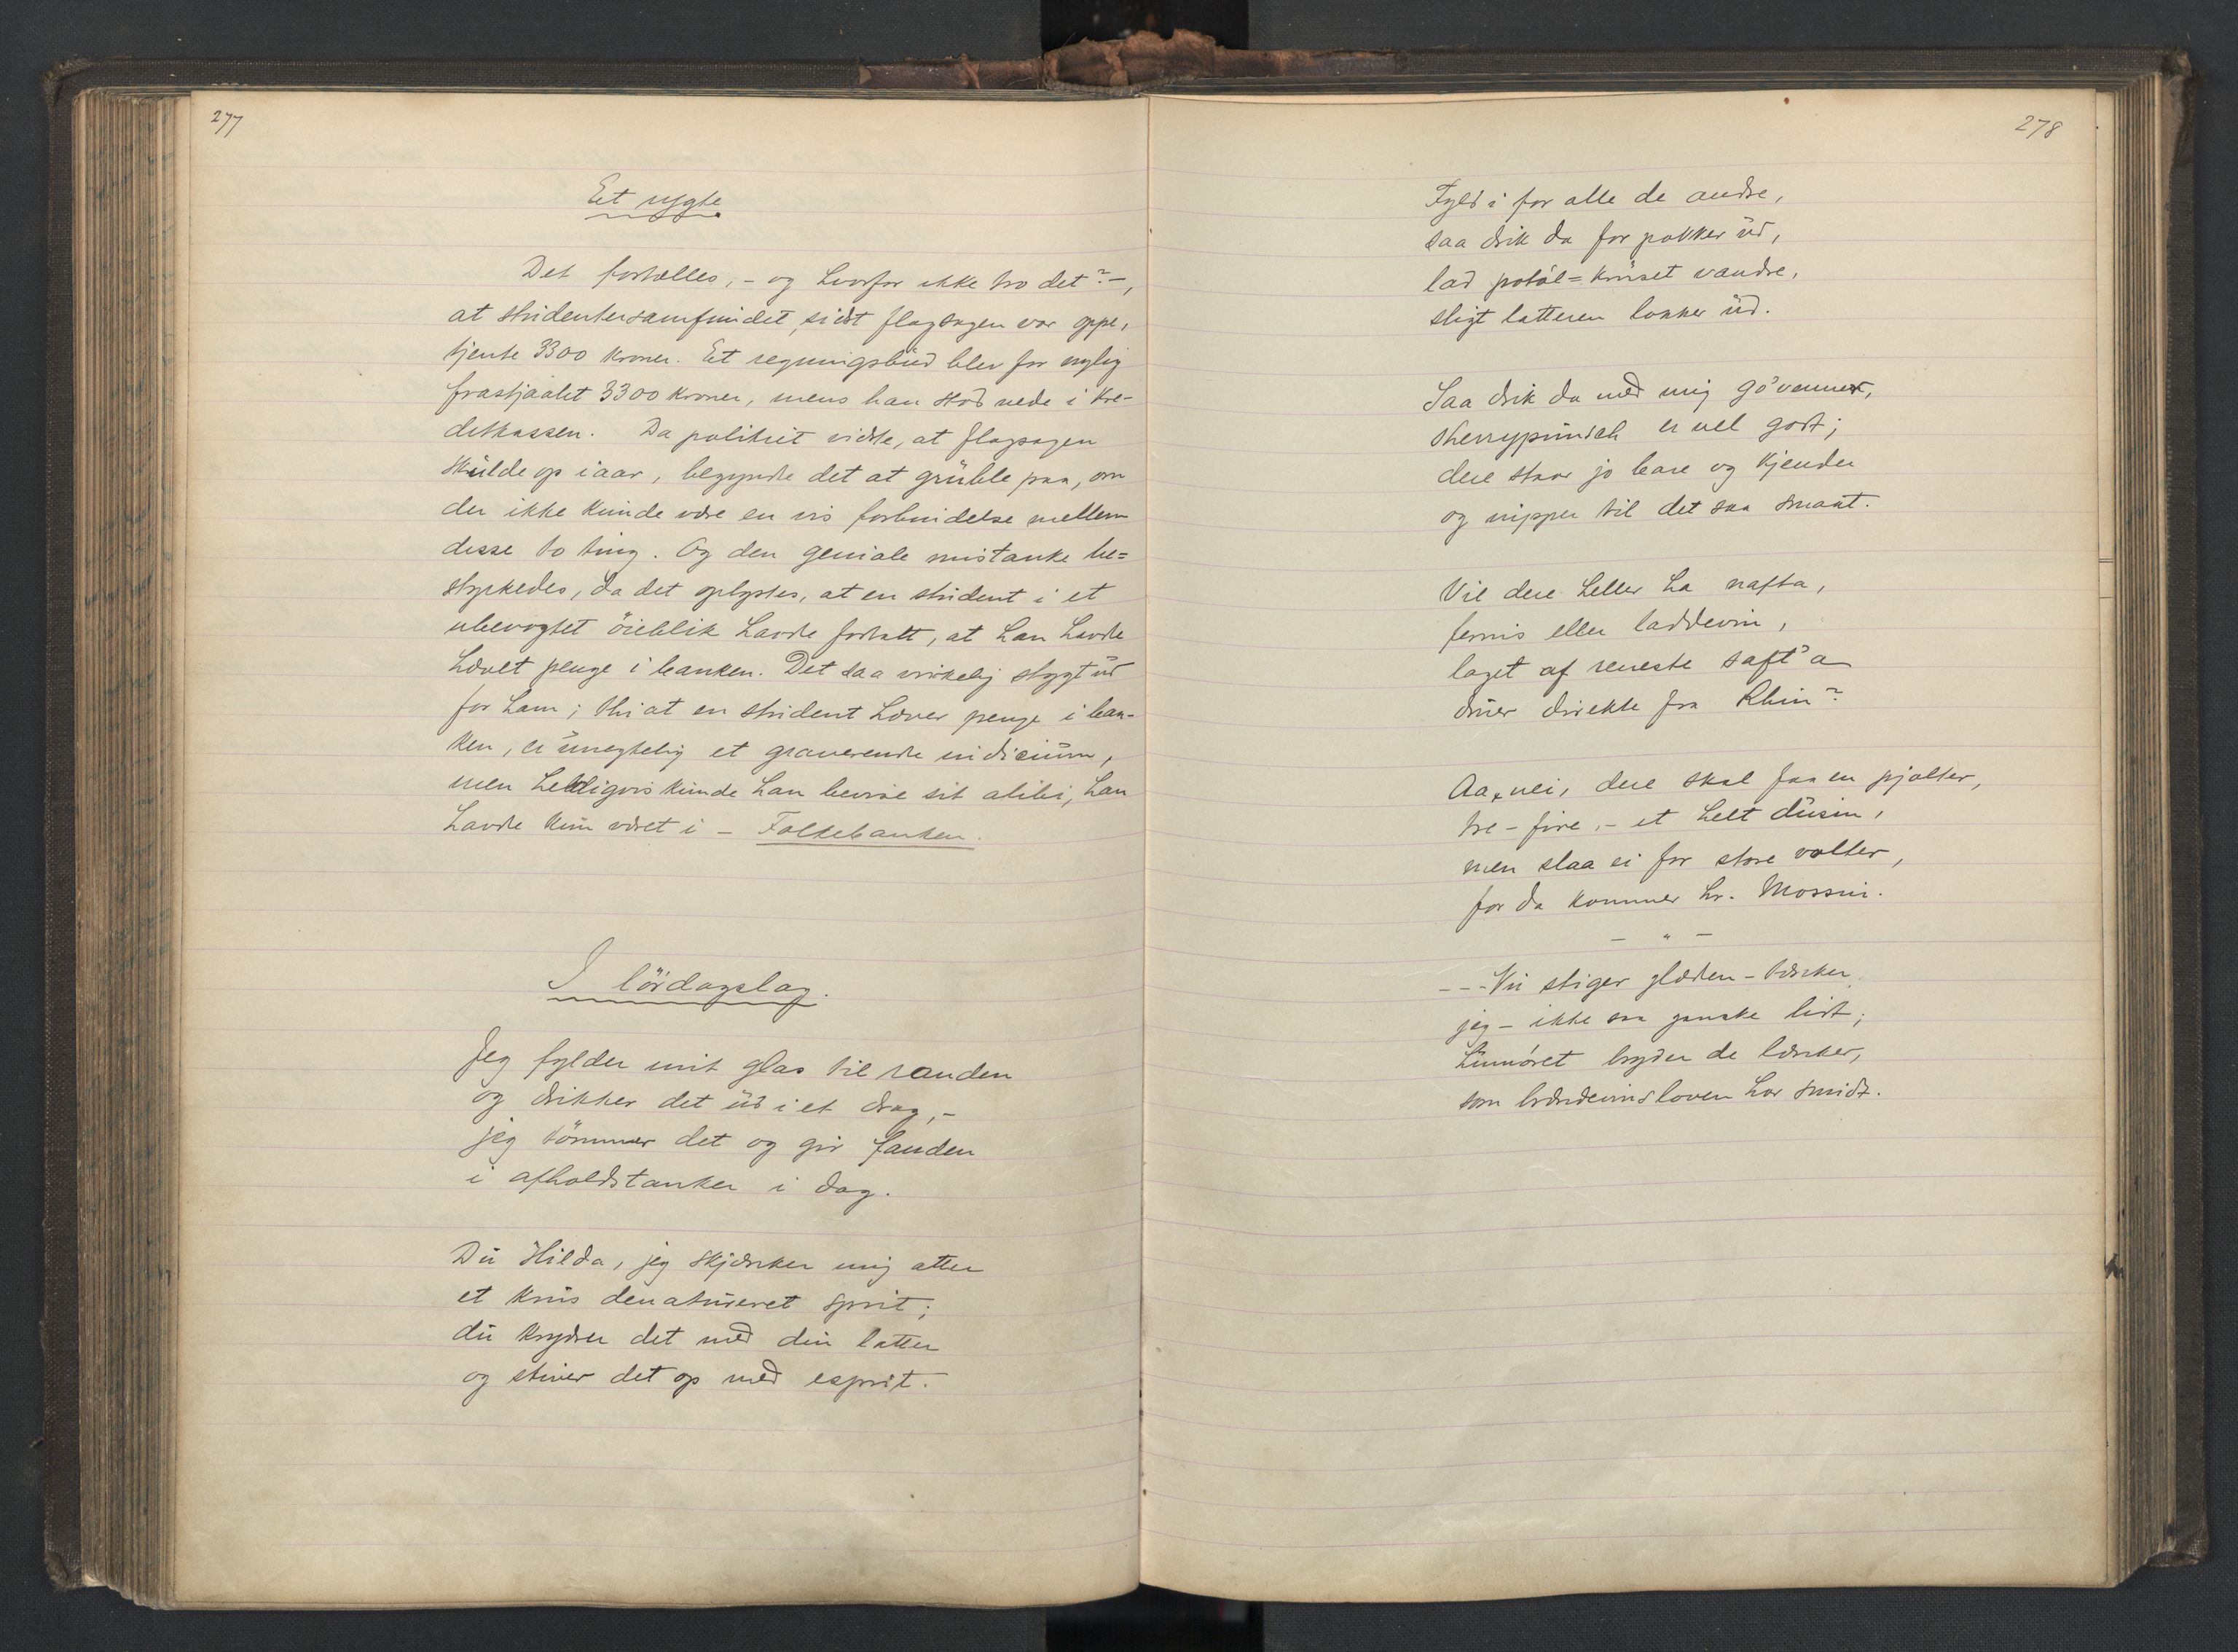 277
Et rygte
Det fortælles, - og hvorfor ikke tro det? -,
at studentersamfundet, sidst flagsagen var oppe,
tjente 3300 kroner. Et regningsbud blev for nylig
frastjaalet 3300 kroner, mens han stod nede i Kre-
ditkassen. Da politiet vidste, at flagsagen
skulde op iaar, begyndte det at gruble paa, om
der ikke kunde være en vis forbindelse mellem
disse to ting. Og den geniale mistanke be=
styrkedes, da det oplystes, at en student i et
ubevogtet öieblik havde fortalt, at han havde
hævet penge i banken. Det saa virkelig stygt ud
for ham; thi at en student hæver penge i ban-
ken, er unegtelig et graverende indicium,
men heldigvis kunde han bevise sit alibi, han
havde kun været i - Folkebanken.
I lördagslag.
Jeg fylder mit glas til randen
og drikker det ud i et drag, -
jeg tömmer det og gir fanden
i afholdstanker i dag.
Du Hilda, jeg skjænker mig atter
et krus denatureret sprit;
du krydrer det med din latter
og stiver det op med esprit.
278
Fyld i for alle de andre,
saa drik da for pokker ud,
lad potöl=kruset vandre,
sligt latteren lokker ud.
Saa drik da med mig go'venner,
sherrypunsch er vel godt;
dere staar jo bare og kjender
og nipper til det saa smaat.
Vil dere heller ha nafta,
fernis eller laddevin,
laget af reneste saft'a
druer direkte fra Rhin?
Aa, nei, dere skal faa en pjolter,
tre - fire, - et helt dusin,
men slaa ei for store volter,
for da kommer hr. Mossin.
- " -
- - - Vi stiger glæden - tænker
jeg - ikke saa ganske lidt;
humöret bryder de lænker,
som brændevinsloven har smidt.